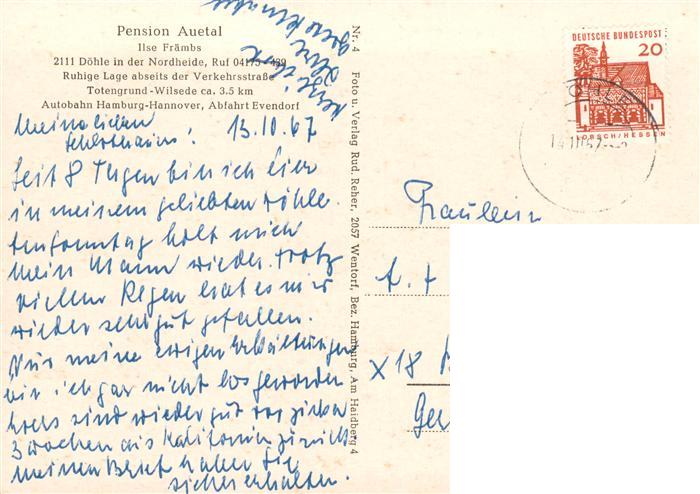 Pension Auetal
Ilse Främbs
2111 Döhle in der Nordheide, Ruf 04175-439
Ruhige Lage abseits der Verkehrsstraße
Totengrund-Wilsede ca. 3.5 km
Autobahn Hamburg-Hannover, Abfahrt Evendorf
Meine lieben
13.10.67
Seit 8 Tagen bin ich hier
in meinem geliebten Döhle.
Am Sonntag holt mich
mein Mann wieder. Trotz
vielem Regen hat es mir
wieder sehr gut gefallen.
Nur meine ewigen Erkältungen
bin ich gar nicht losgeworden
sind wieder gut vor
3 Wochen aus Kalifornien zurück.
Meinen Brief haben Sie
sicher erhalten.
Nr. 4 Foto u. Verlag Rud. Reher, 2057 Wentorf, Bez. Hamburg, Am Haidberg 4
DEUTSCHE BUNDESPOST
20
LORSCH/HESSEN
Fräulein
X18
Ger